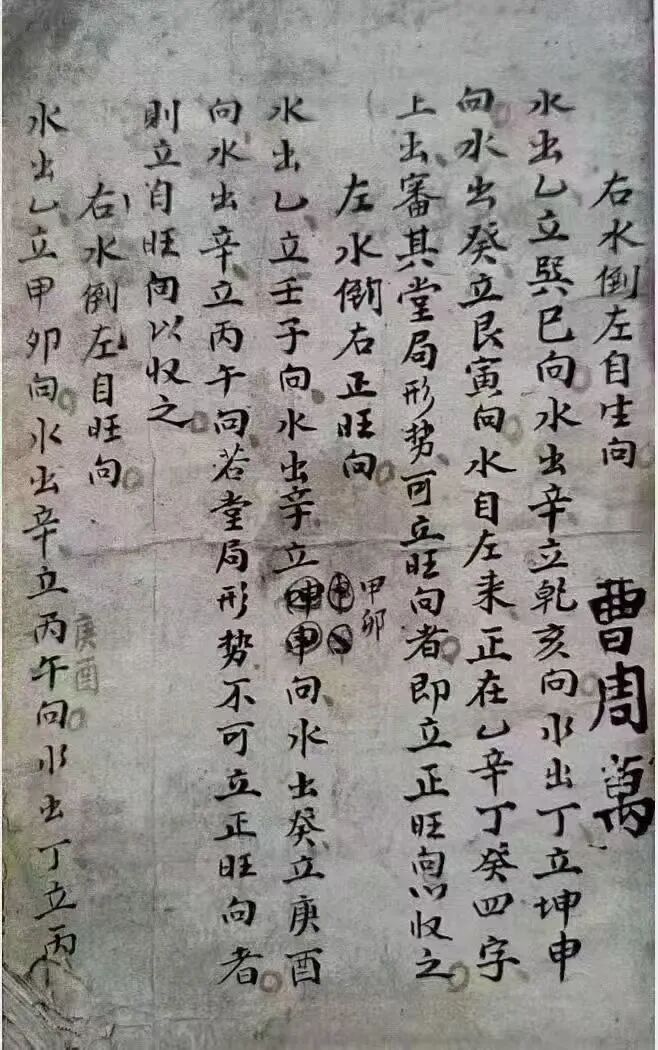 右水倒左自生向
曹周萬
水出乙立巽巳向水出辛立乾亥向水出丁立坤申
向水出癸立艮寅向水自左来正在乙辛丁癸四字
上出審其堂局形势可立旺向者即立正旺向以收之
左水倒右正旺向
甲卯
水出乙立壬子向水出辛立坤申向水出癸立庚酉
向水出辛立丙午向若堂局形势不可立正旺向者
則立自旺向以収之
右水倒左自旺向
庚酉
水出乙立甲卯向水出辛立丙午向水出丁立丙